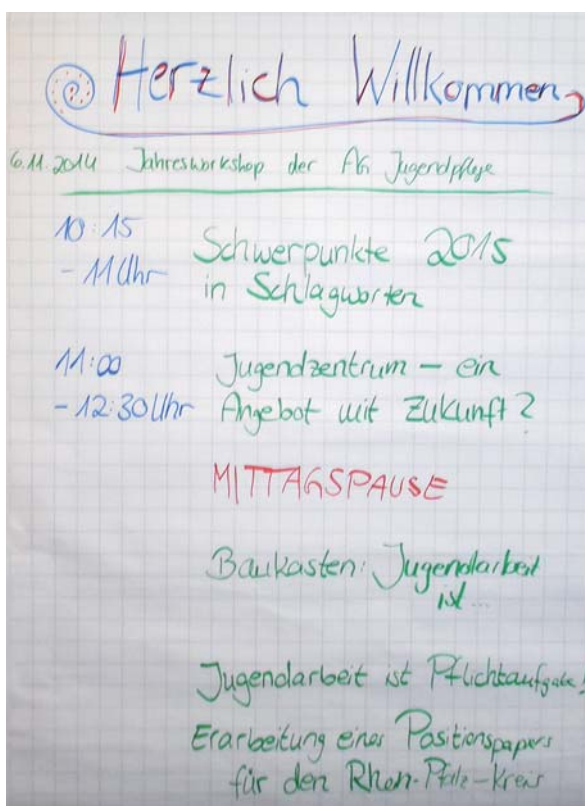 Herzlich Willkommen
6.11.2014 Jahresworkshop der AG Jugendpflege
10:15 Schwerpunkte 2015
- 11 Uhr in Schlagworten
11:00 Jugendzentrum - ein
- 12:30 Uhr Angebot mit Zukunft?
MITTAGSPAUSE
Baukasten: Jugendarbeit
ist...
Jugendarbeit ist Pflichtaufgabe!
Erarbeitung eines Positionspapers
für den Rhein-Pfalz-Kreis